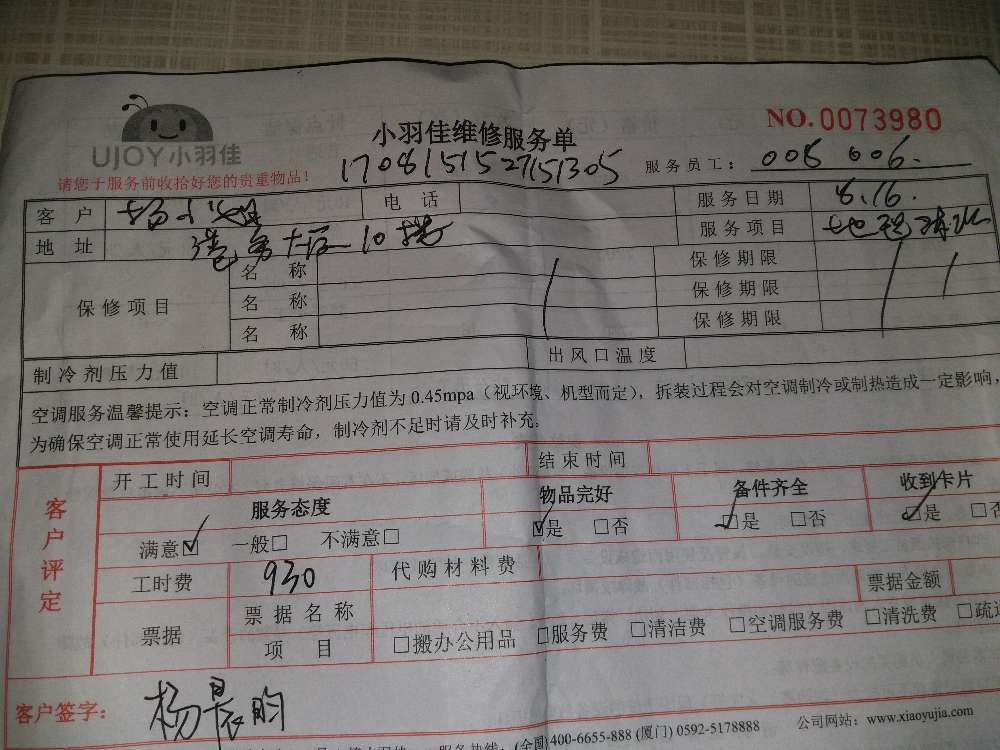 UJOY小羽佳
小羽佳维修服务单
NO.0073980
请您于服务前收拾好您的贵重物品！
1708151527151305
服务员工： 005 006.
客 户 杨小姐 电 话 服务日期 8.16.
地 址 10楼 服务项目
保修项目 名 称 保修期限
名 称 保修期限
名 称 保修期限
制冷剂压力值 出风口温度
空调服务温馨提示：空调正常制冷剂压力值为 0.45mpa（视环境、机型而定），拆装过程会对空调制冷或制热造成一定影响，
为确保空调正常使用延长空调寿命，制冷剂不足时请及时补充。
客户评定
开工时间 结束时间
服务态度 物品完好 备件齐全 收到卡片
满意☑ 一般□ 不满意□ ☑是 □否 ☑是 □否 ☑是 □否
工时费 930 代购材料费
票据 票据名称 票据金额
项 目 □搬办公用品 □服务费 □清洁费 □空调服务费 □清洗费 □疏通
客户签字： 杨晨昀
服务热线：(全国)400-6655-888 (厦门) 0592-5178888 公司网站：www.xiaoyujia.com